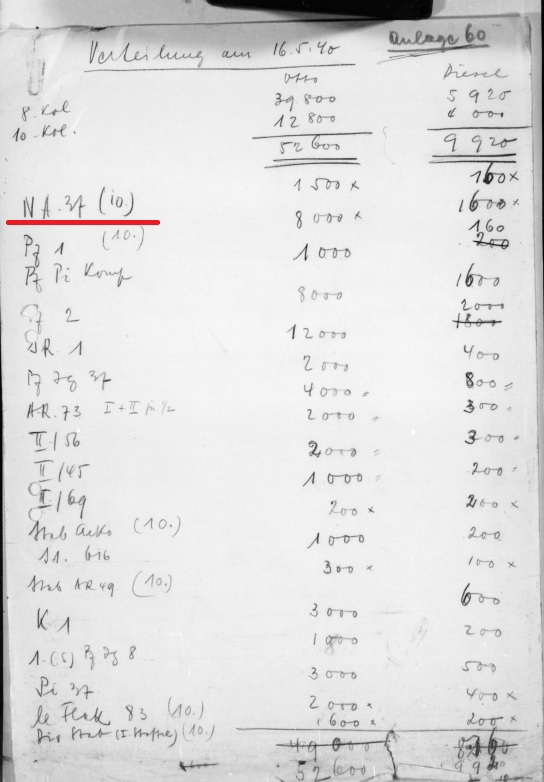 Anlage 60
Verteilung am 16.5.40
Otto Diesel
8. Kol 39 800 5 920
10. Kol. 12 800 4 000
52 600 9 920
NA. 37 (10.) 1 500 x 160 x
Pz 1 (10.) 8 000 x 1600 x
Pz Pi Komp 1 000 160
200
Pz 2 8000 1600
SR. 1 12 000 2000
1800
Pz Jg 37 2 000 400
AR. 73 I + II 4 000 " 800 "
II/56 2 000 " 300 "
II/45 2000 " 300 "
II/69 1 000 " 200 "
Stab Arko (10.) 200 x 200 x
616 1000 200
Stab AR 49 (10.) 300 x 100 x
K 1 3 000 600
1.(S) Pz Jg 8 1 000 200
Pi 37 3 000 500
le Flak 83 (10.) 2 000 x 400 x
Div Stab (I. Staffel) (10.) 1600 x 200 x
49 000
52 600 9 920